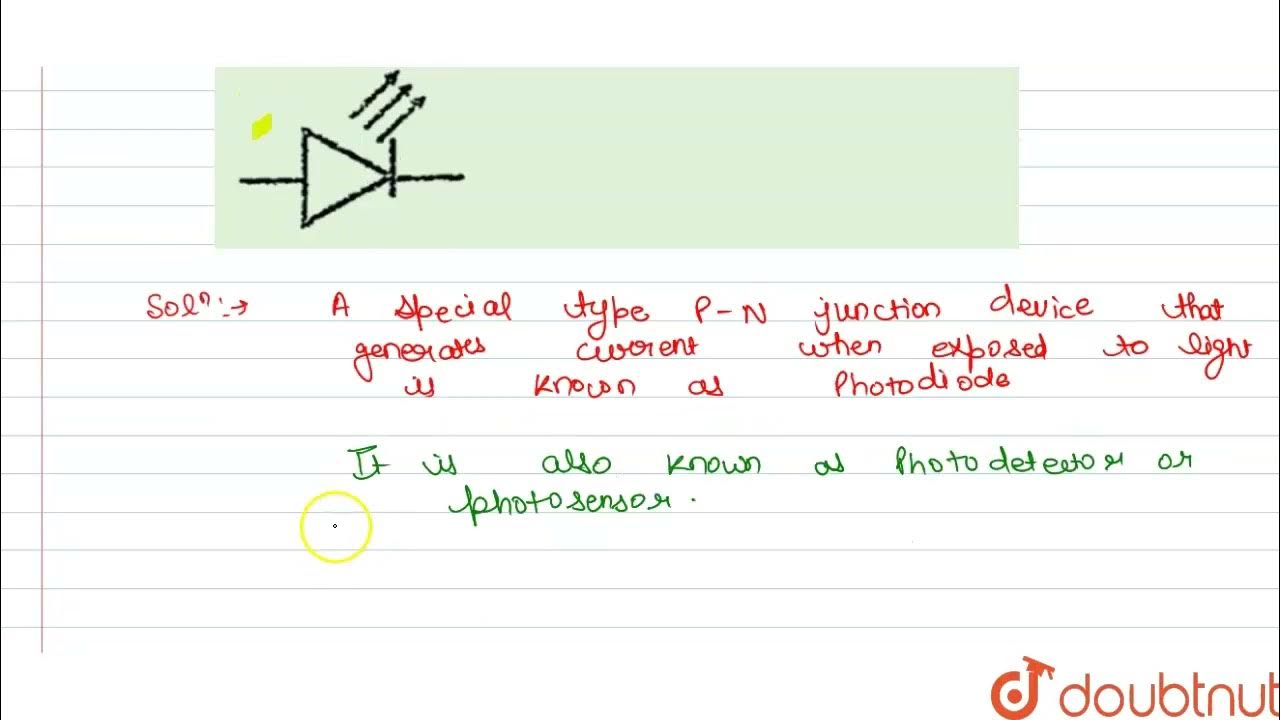 Solⁿ:→ A special type P-N junction device that
generates current when exposed to light
is known as Photodiode
It is also known as Photodetector or
photosensor.
doubtnut